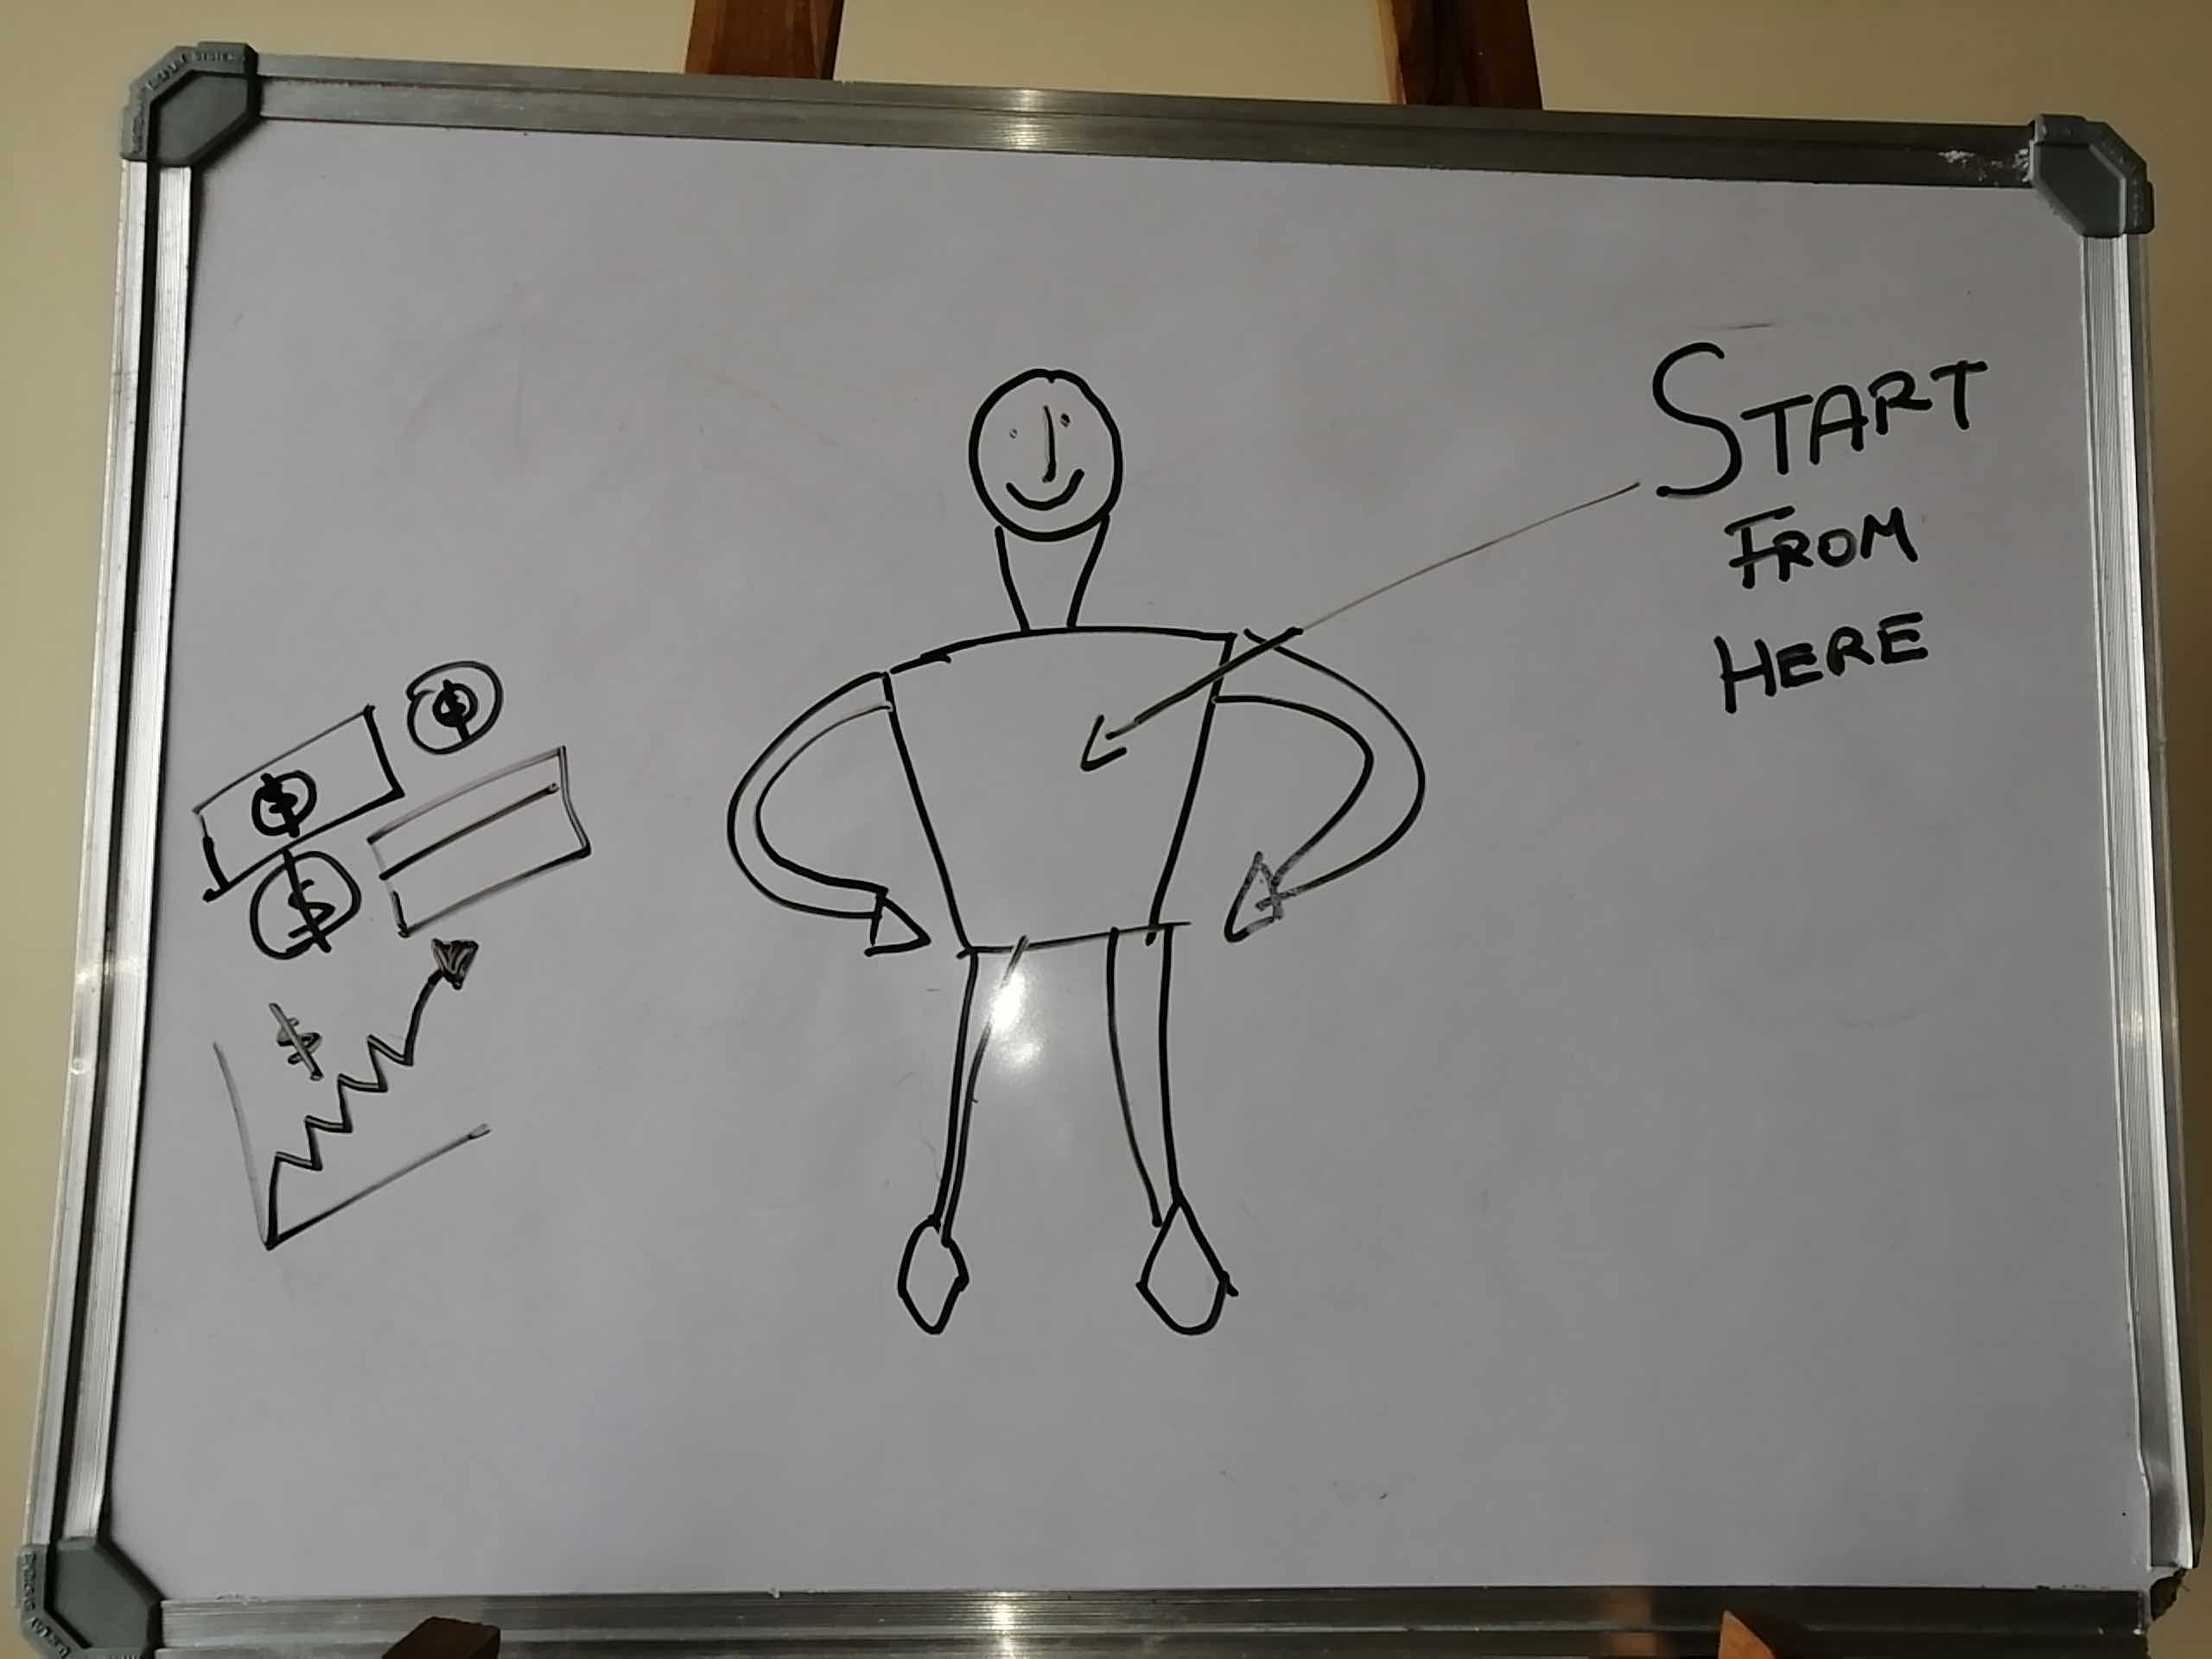 START
FROM
HERE
$
$
$
$